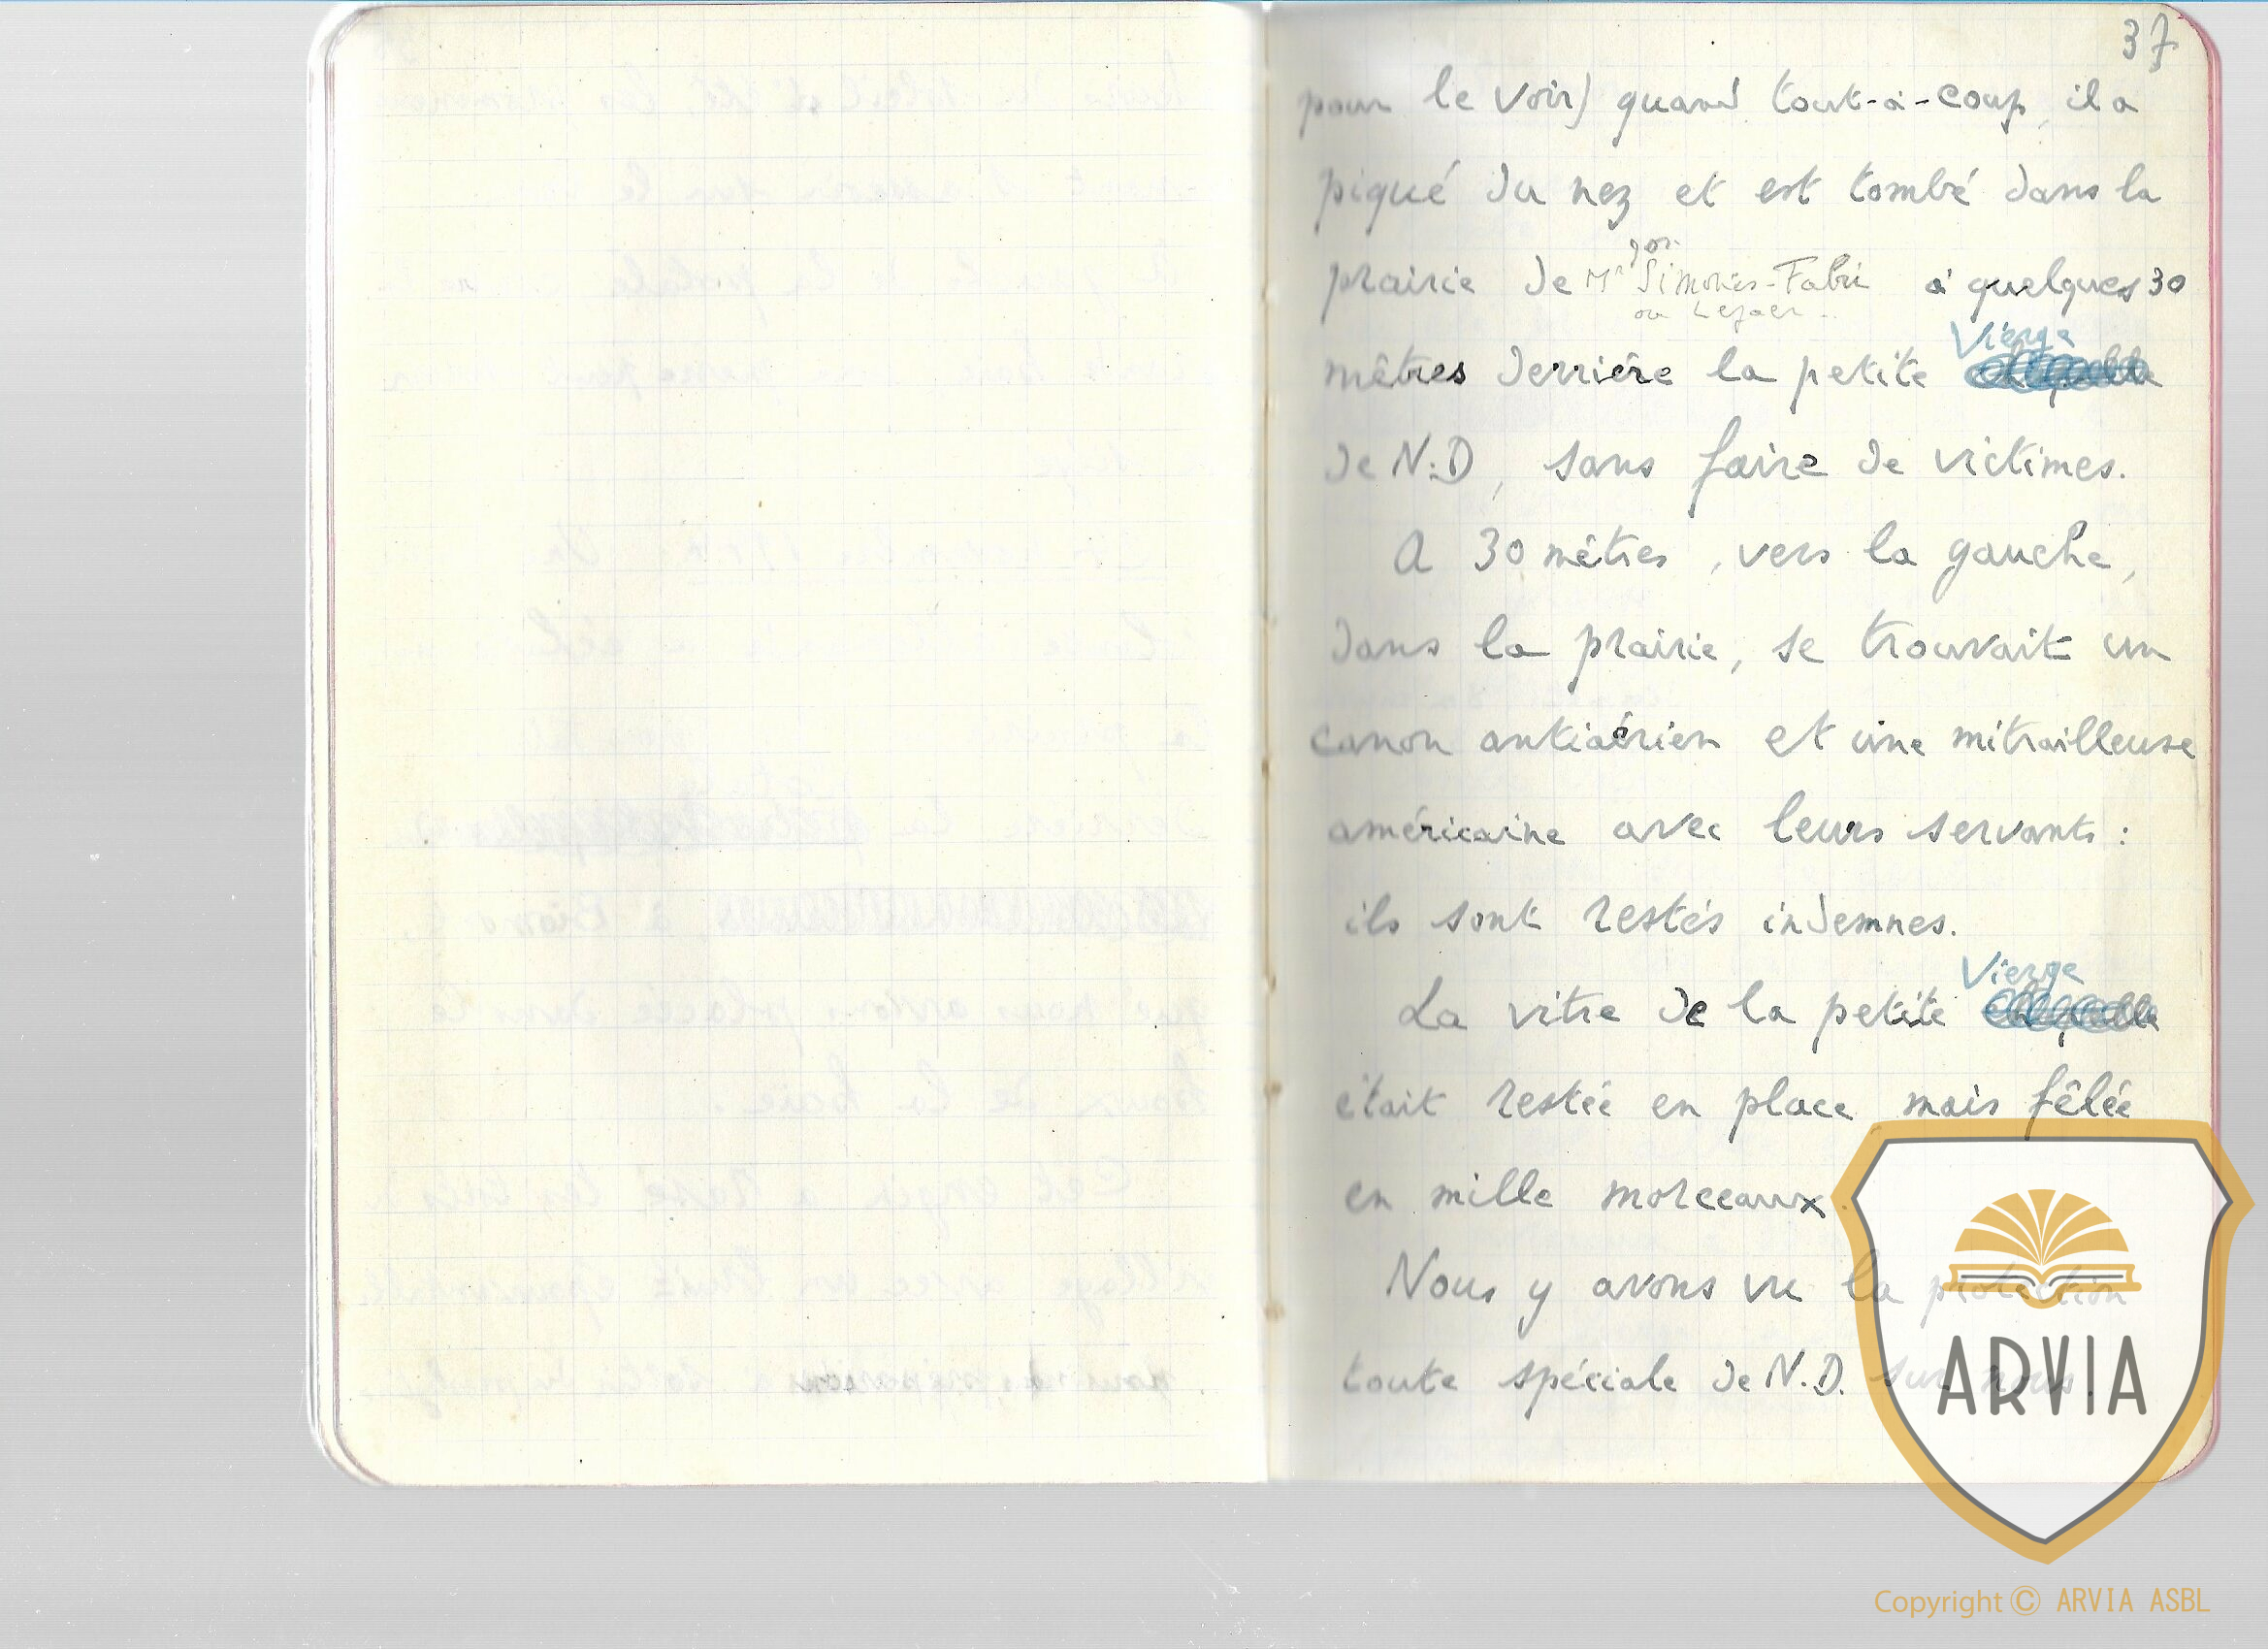 37
pour le voir) quand tout-à-coup, il a
piqué du nez et est tombé dans la
prairie de Mr Simonis-Fabri à quelques 30
ou
mètres derrière la petite Vierge
de N.D, sans faire de victimes.
A 30 mètres, vers la gauche,
dans la prairie, se trouvait un
canon antiaérien et une mitrailleuse
américaine avec leurs servants :
ils sont restés indemnes.
La vitre de la petite Vierge
était restée en place, mais fêlée
en mille morceaux.
Nous y avons vu la protection
toute spéciale de N.D. sur nous.
ARVIA
Copyright © ARVIA ASBL